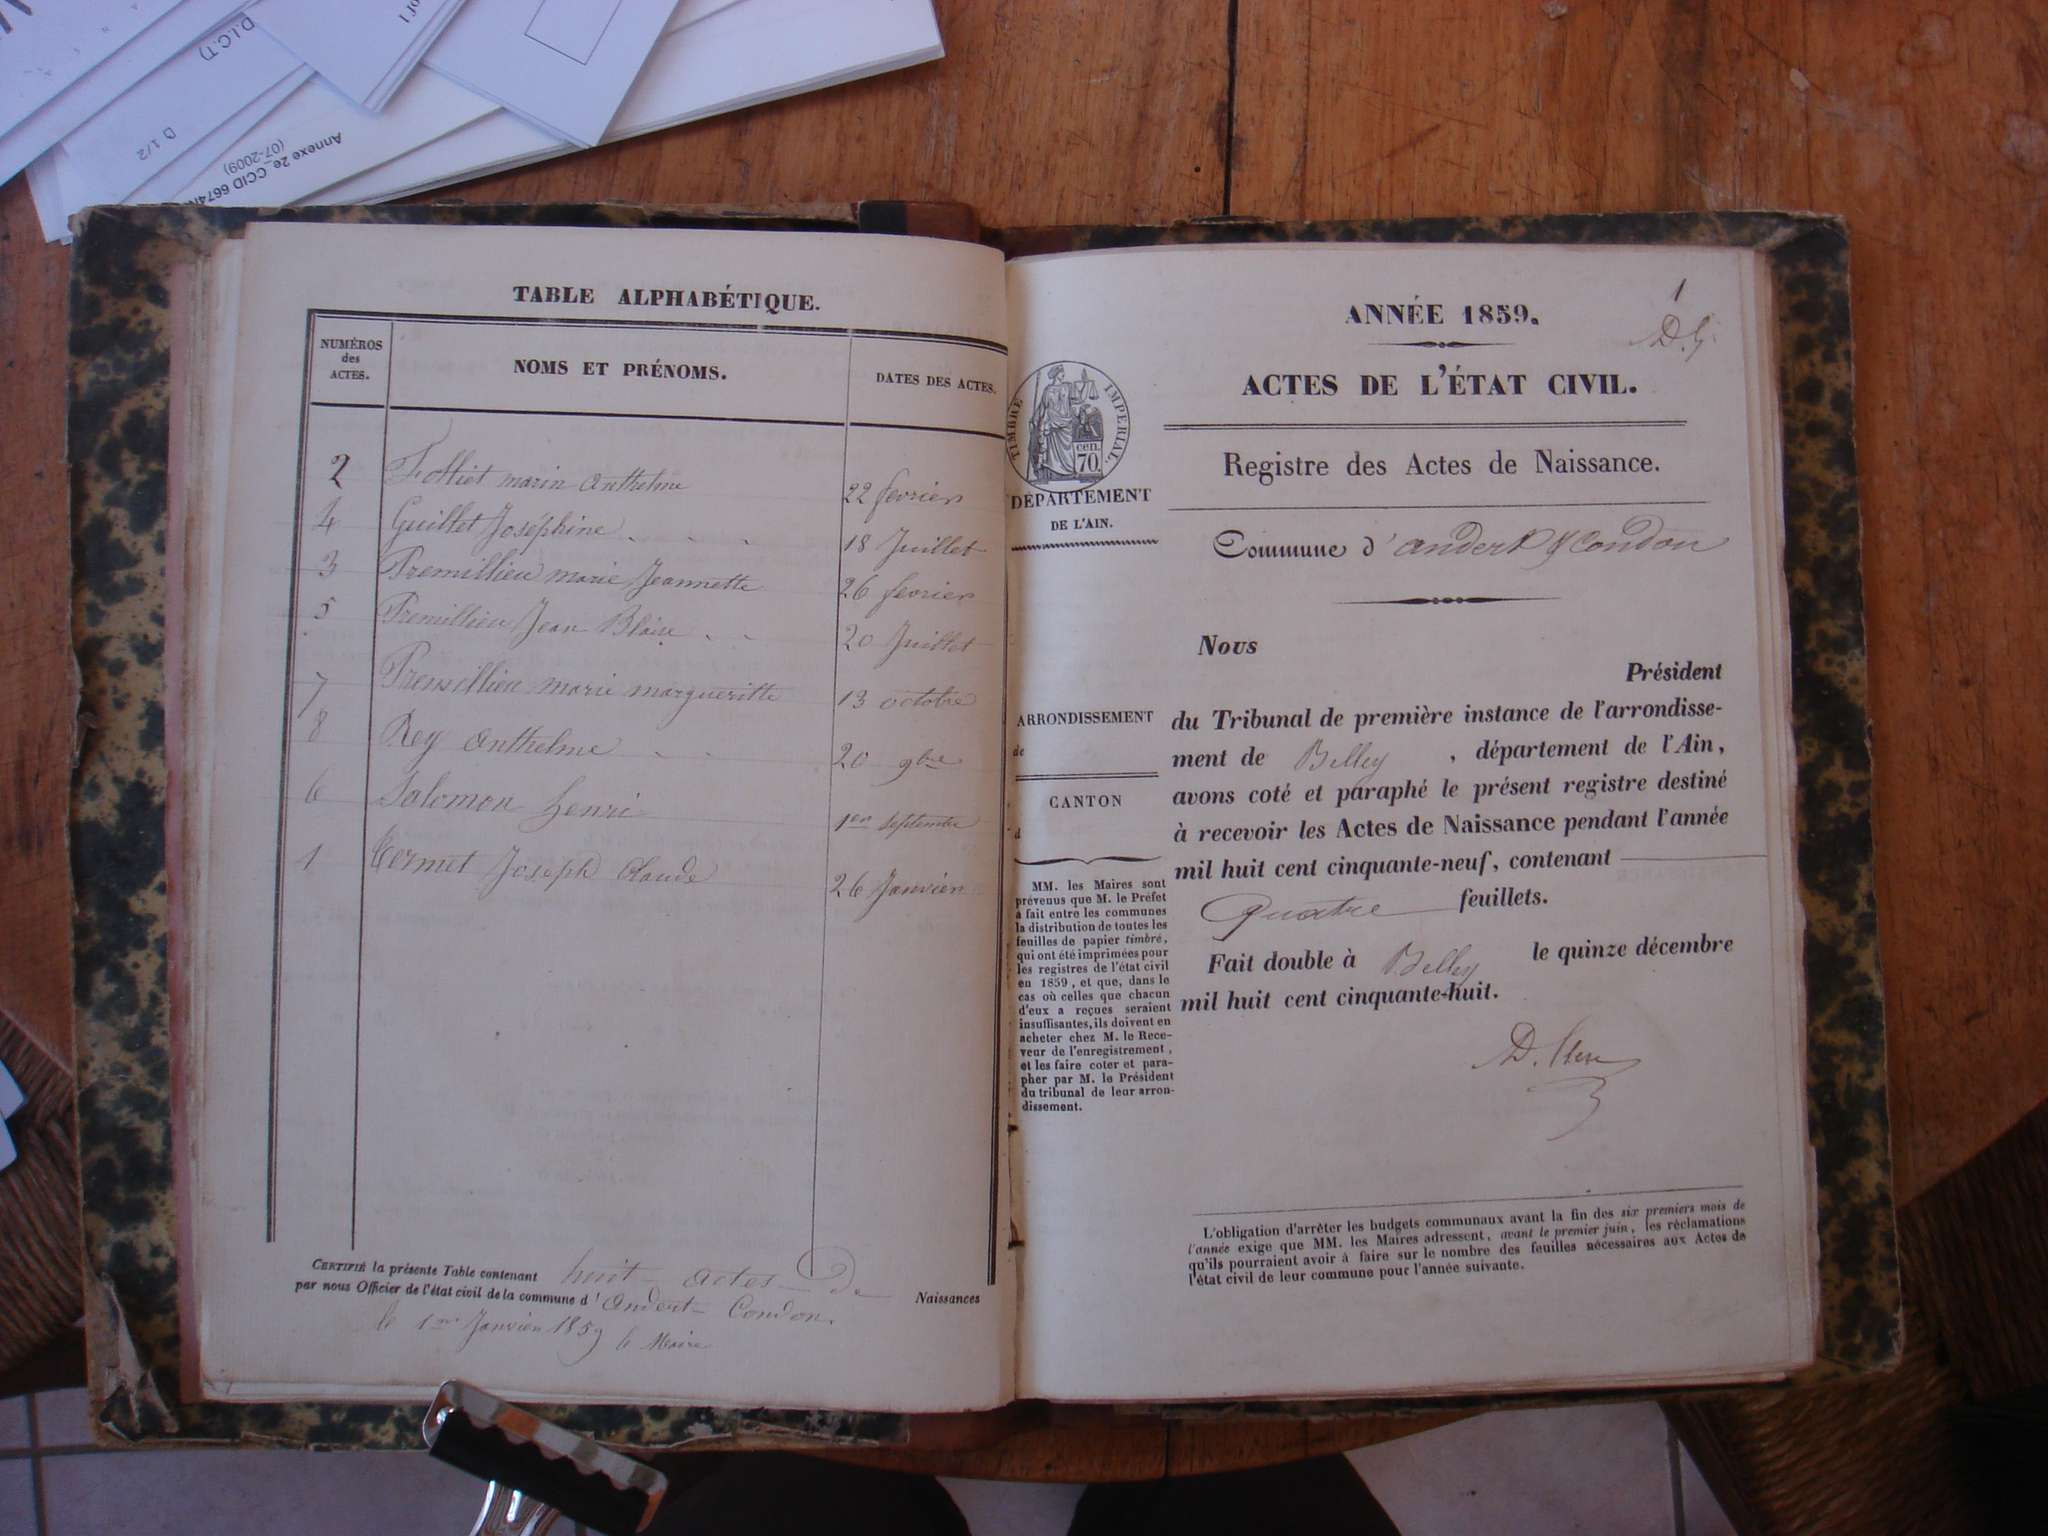 of 1
D.I.C.T)
D 1/2
Annexe 2e_CCID 6674N
(07-2009)
TABLE ALPHABÉTIQUE.
NUMÉROS des ACTES.
NOMS ET PRÉNOMS.
DATES DES ACTES.
2 Folliet marin anthelme 22 fevrier
4 Guillet Joséphine 18 Juillet
3 Premillieu marie Jeannette 26 fevrier
5 Premillieu Jean Blaise 20 Juillet
7 Premillieu marie margueritte 13 octobre
8 Rey anthelme 20 9bre
6 Salomon henri 1er septembre
1 Termet Joseph Claude 26 Janvier
CERTIFIÉ la présente Table contenant huit actes de Naissances
par nous Officier de l'état civil de la commune d'Andert-Condon.
le 1er Janvier 1859 le Maire
1
D. G.
ANNÉE 1859.
ACTES DE L'ÉTAT CIVIL.
Registre des Actes de Naissance.
Commune d'andert & Condon
TIMBRE IMPERIAL
cen.
70.
DÉPARTEMENT
DE L'AIN.
ARRONDISSEMENT
de
CANTON
d
MM. les Maires sont
prévenus que M. le Préfet
a fait entre les communes
la distribution de toutes les
feuilles de papier timbré,
qui ont été imprimées pour
les registres de l'état civil
en 1859, et que, dans le
cas où celles que chacun
d'eux a reçues seraient
insuffisantes, ils doivent en
acheter chez M. le Rece-
veur de l'enregistrement,
et les faire coter et para-
pher par M. le Président
du tribunal de leur arron-
dissement.
Nous
Président
du Tribunal de première instance de l'arrondisse-
ment de Belley , département de l'Ain,
avons coté et paraphé le présent registre destiné
à recevoir les Actes de Naissance pendant l'année
mil huit cent cinquante-neuf, contenant
Quatre feuillets.
Fait double à Belley le quinze décembre
mil huit cent cinquante-huit.
L'obligation d'arrêter les budgets communaux avant la fin des six premiers mois de
l'année exige que MM. les Maires adressent, avant le premier juin, les réclamations
qu'ils pourraient avoir à faire sur le nombre des feuilles nécessaires aux Actes de
l'état civil de leur commune pour l'année suivante.